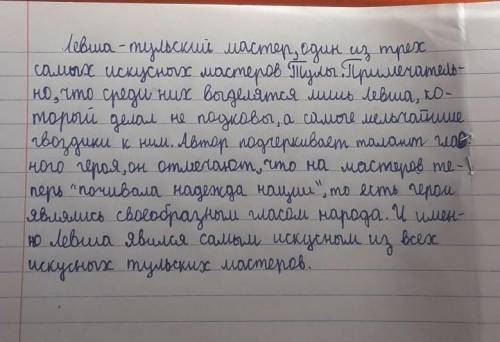 Левша - тульский мастер, один из трех
самых искусных мастеров Тулы. Примечатель-
но, что среди них выделятся лишь Левша, ко-
торый делал не подковы, а самые мельчайшие
гвоздики к ним. Автор подчеркивает талант глав-
ного героя, он отмечают, что на мастеров те-
перь "почивала надежда нации", то есть герои
являлись своеобразным гласом народа. И имен-
но Левша явился самым искусным из всех
искусных тульских мастеров.